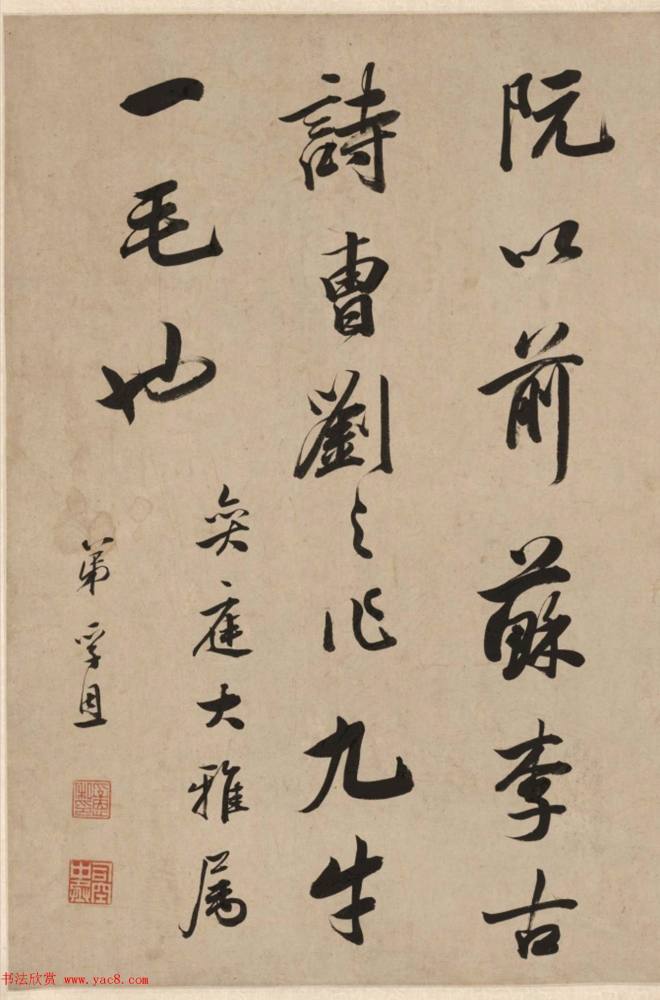 阮以前蘇李古
詩曹劉之作九牛
一毛也
奕庭大雅属
弟孚恩
书法欣赏 www.yac8.com